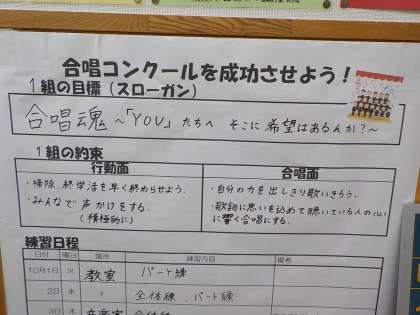 合唱コンクールを成功させよう！
1組の目標（スローガン）
合唱魂 ～「YOU」たちへ そこに希望はあるんか？～
1組の約束
行動面 合唱面
・掃除、終学活を早く終わらせよう。
・みんなで声かけをする。
（積極的に）
・自分の力を出しきり歌いきろう。
・歌詞に思いを込めて聴いている人の心
に響く合唱にする。
練習日程
日付 曜日 場所 練習内容 備考
10月1日 火 教室 パート練
2日 水 〃 全体練、パート練
3日 木 音楽室